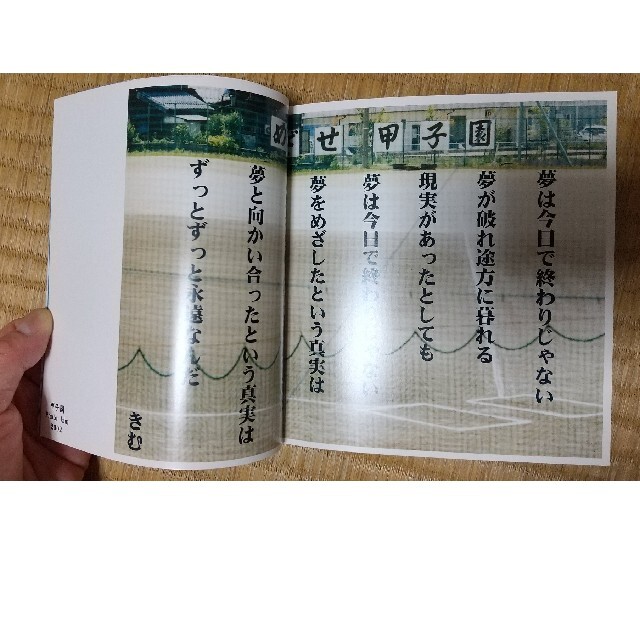 めざせ甲子園
夢は今日で終わりじゃない
夢が破れ途方に暮れる
現実があったとしても
夢は今日で終わりじゃない
夢をめざしたという真実は
夢と向かい合ったという真実は
ずっとずっと永遠なんだ
きむ